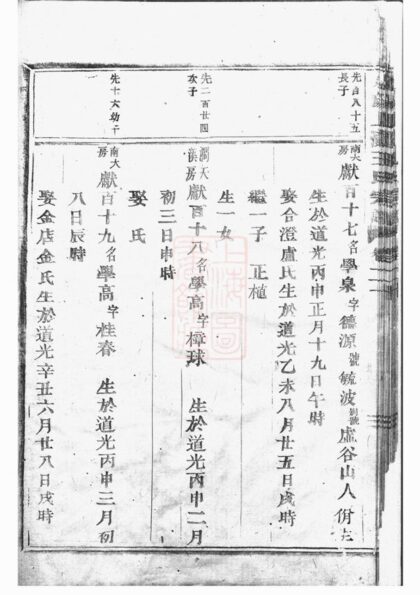 先百八十五
長子
南大房 獻百十七名學泉字德源號毓波別號虛谷山人佾生
生於道光丙申正月十九日午時
娶合澄盧氏生於道光乙未八月廿五日戌時
繼一子 正植
生一女
先二百廿四
次子
房 獻百十八名學高字樟球 生於道光丙申二月
初三日申時
娶 氏
先十六幼子
南大房 獻百十九名學高字桂春 生於道光丙申三月初
八日辰時
娶金店金氏生於道光辛丑六月廿八日戌時